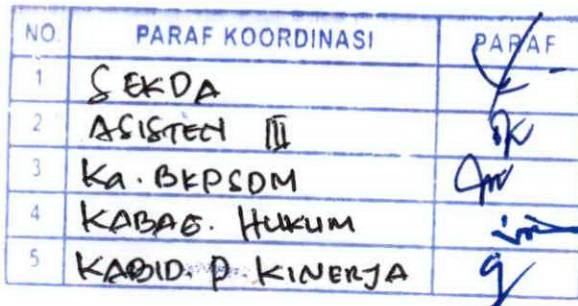 NO. PARAF KOORDINASI PARAF
1 SEKDA
2 ASISTEN III
3 Ka. BKPSDM
4 KABAG. HUKUM
5 KABID. P. KINERJA